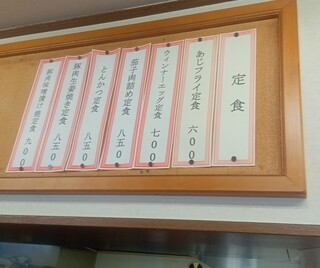 定食
あじフライ定食 六〇〇
ウィンナーエッグ定食 七〇〇
茄子肉詰め定食 八五〇
とんかつ定食 八五〇
豚肉生姜焼き定食 八五〇
豚肉味噌漬け焼定食 九〇〇